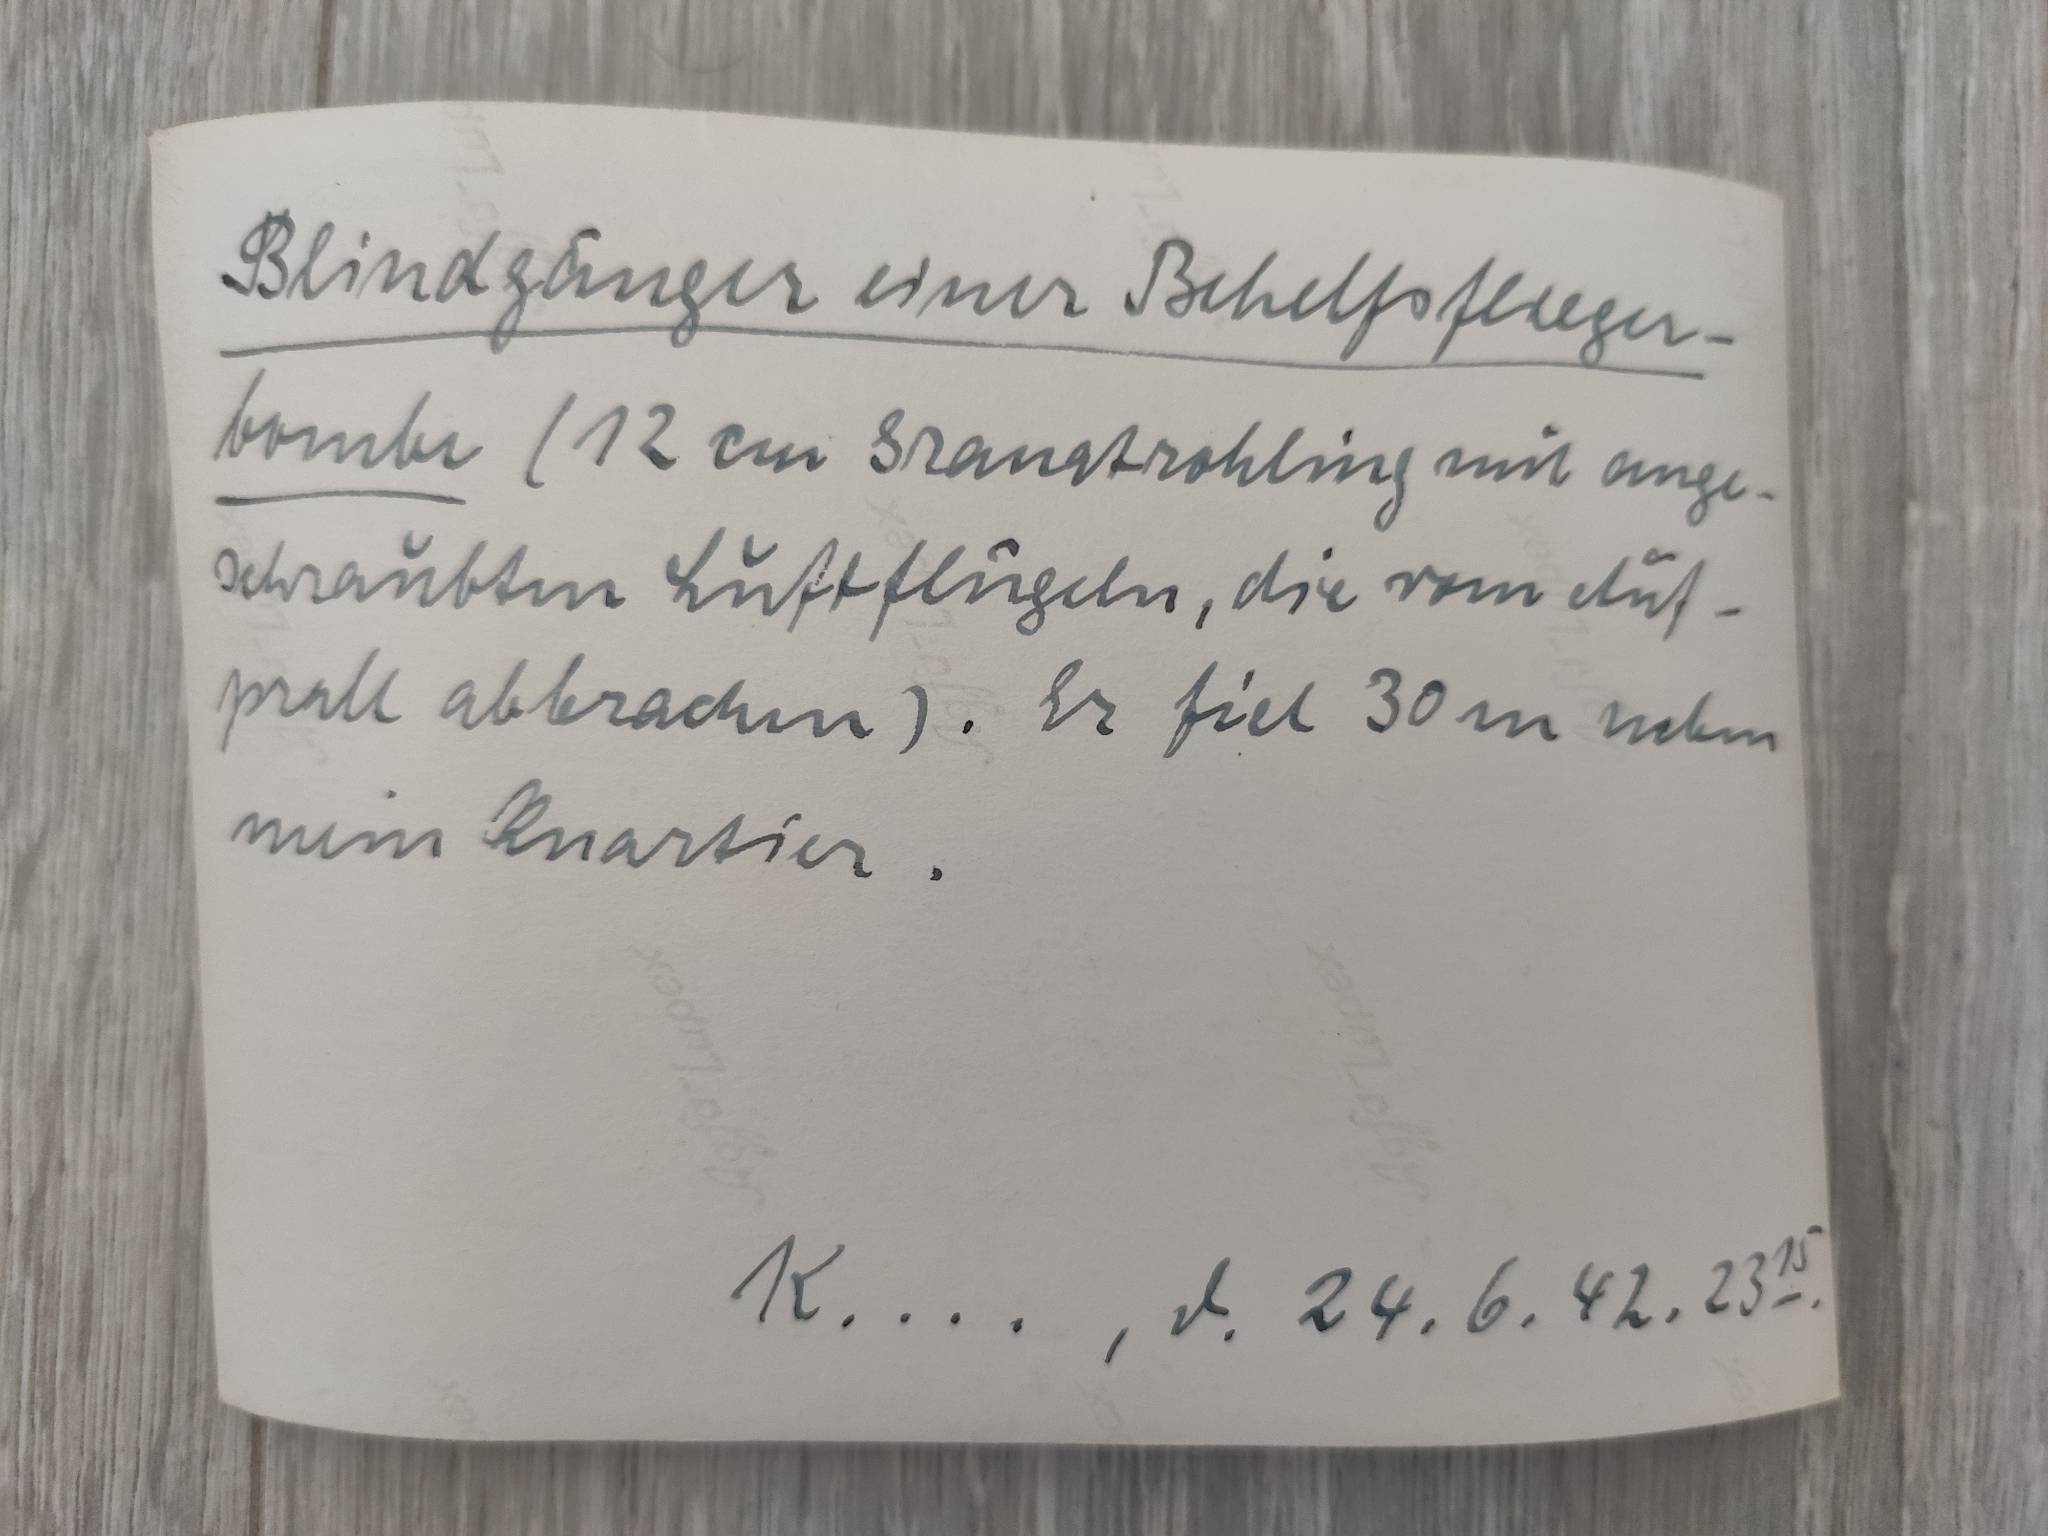 Blindgänger einer Behelfsflieger-
bombe (12 cm Granatrohling mit ange-
schraubten Luftflügeln, die vom Auf-
prall abbrachen). Er fiel 30 m neben
mein Quartier.
K. . . . , d. 24. 6. 42. 23 15.
Agfa-Lupex
Agfa-Lupex